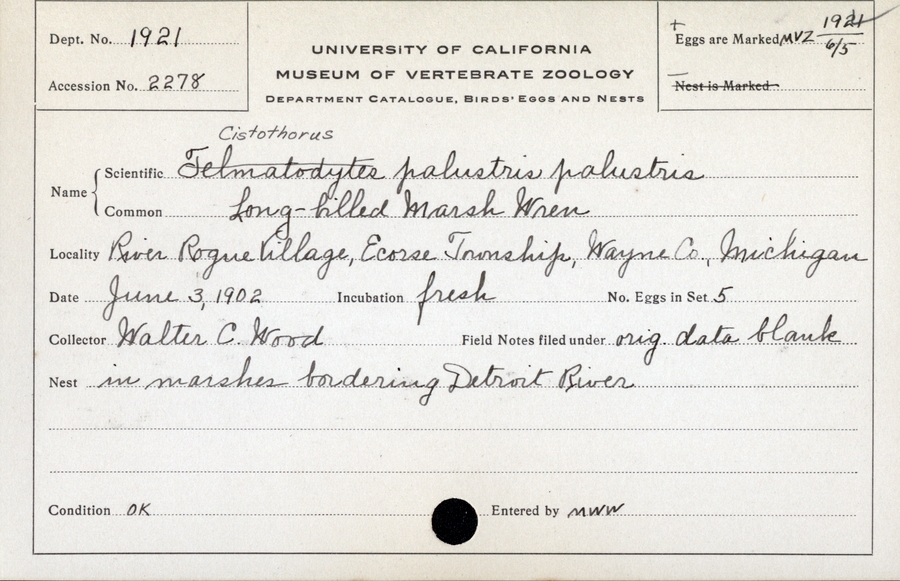 Dept. No. 1921
Accession No. 2278
UNIVERSITY OF CALIFORNIA
MUSEUM OF VERTEBRATE ZOOLOGY
DEPARTMENT CATALOGUE, BIRDS' EGGS AND NESTS
+
Eggs are Marked MVZ 1921
6/5
—
Nest is Marked
Cistothorus
Name { Scientific Telmatodytes palustris palustris
Common Long-billed Marsh Wren
Locality River Rogue Village, Ecorse Township, Wayne Co., Michigan
Date June 3, 1902 Incubation fresh No. Eggs in Set 5
Collector Walter C. Wood Field Notes filed under orig. data blank
Nest in marshes bordering Detroit River
Condition OK Entered by MWW